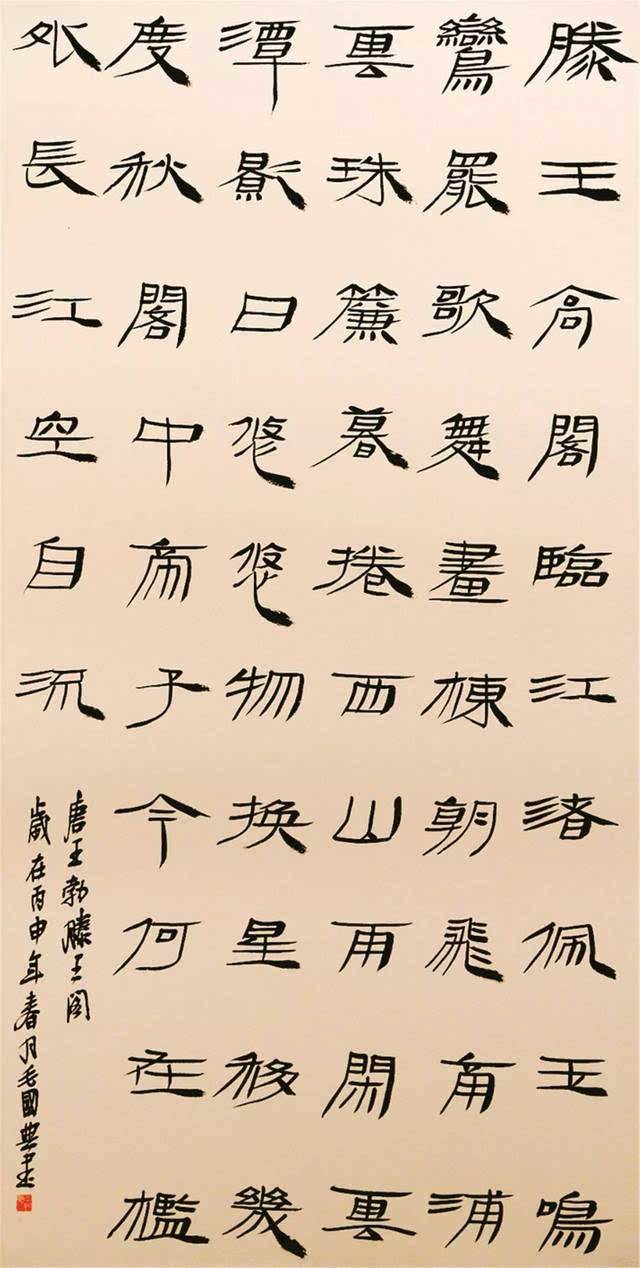 滕王高閣臨江渚佩玉鳴
鸞罷歌舞畫棟朝飛南浦
雲珠簾暮捲西山雨閑雲
潭影日悠悠物换星移幾
度秋閣中帝子今何在檻
外長江空自流
唐王勃滕王阁
歲在丙申年春月毛國典書